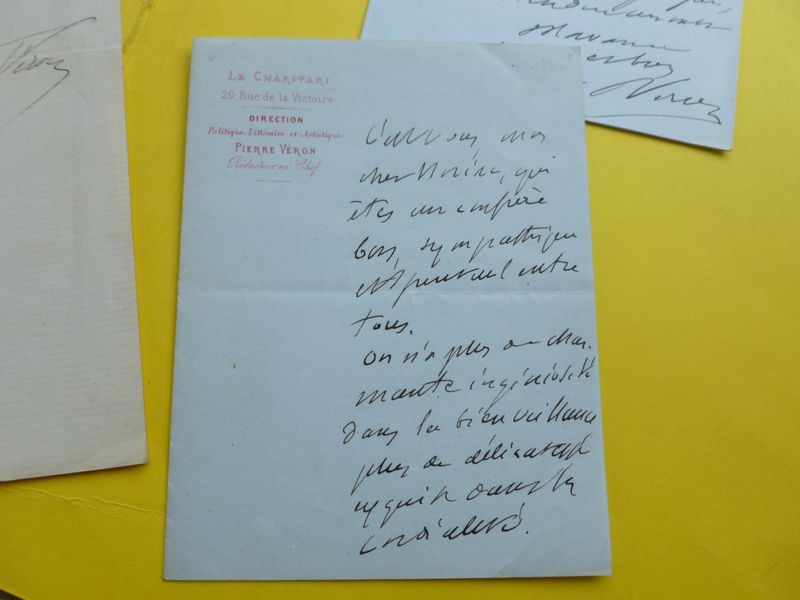 LE CHARIVARI
20, Rue de la Victoire
DIRECTION
Politique, Littéraire et Artistique
PIERRE VÉRON
Rédacteur en Chef
C'est vous, mon
cher, qui
êtes un confrère
bon, sympathique
et entre
tous.
On n'a plus de char-
mante ingéniosité
dans la bienveillance
plus de délicatesse
exquise dans la
cordialité.
Véron
Véron